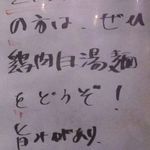 の方は、ぜひ
鶏肉白湯麺
をどうぞ!
旨みがあり、